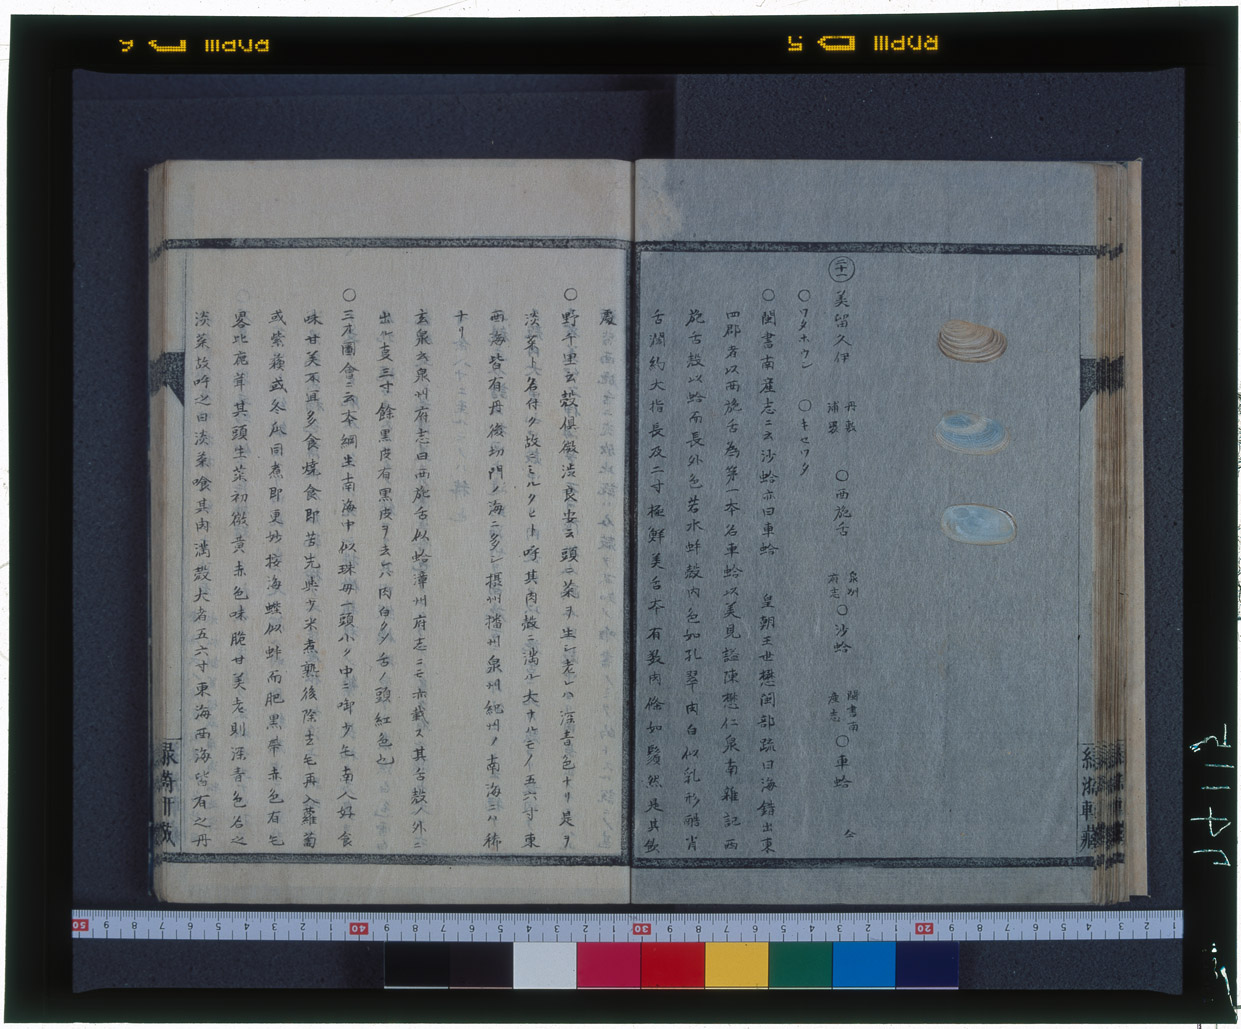 二十一
美留久伊 丹敷浦畧 ○西施舌 泉州府志 ○沙蛤 閩書南産志 ○車蛤 仝
○ワタホウシ ○キセワタ
○閩書南産志ニ云沙蛤亦曰車蛤 皇朝王世懋閩部疏曰海錯出東
四郡者以西施舌為第一本名車蛤以美見謚陳懋仁泉南雜記西
施舌殻以蛤而長外色若水蚌殻内色如孔翠肉白似乳形酷肖
舌濶約大指長及二寸極鮮美舌本有数肉條如鬚然是其飲
處
○野千里云殻倶微淡良安云頭ニ菜ヲ生シ老レハ深青色ナリ是ヲ
淡菜ト名付ク故ニミルクヒト呼其肉殻ニ満ル大ナルモノ五六寸東
西海皆有丹後切門ノ海ニ多シ摂州播州泉州紀州ノ南海ニハ稀
ナリ
玄泉云泉州府志曰西施舌似蛤漳州府志ニモ亦載ス其舌殻ノ外ニ
出ル支三寸餘黒皮有黒皮ヲ去レハ肉白クシテ舌ノ頭紅色也
○三才圖會ニ云本綱生南海中似珠母一頭小ク中ニ啣少毛南人好食
味甘美不宜多食燒食即苦先與少米煮熟後除去毛再入蘿蔔
或紫蘓或冬瓜同煮即更妙按海蝗似蚌而肥黒帯赤色有毛
畧比施茸其頭生菜初微黄赤色味脆甘美老則深青色名之
淡菜故呼之曰淡菜喰其肉満殻大者五六寸東海西海皆有之丹
RDPIII 5
RDPIII 6